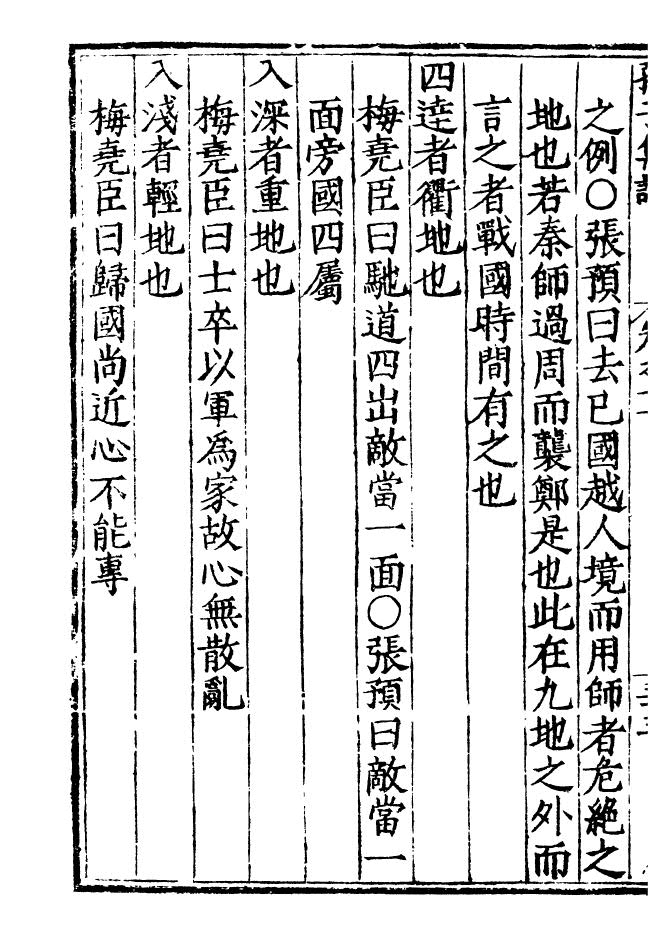 之例〇張預曰去已國越人境而用師者危絶之
地也若秦師過周而襲鄭是也此在九地之外而
言之者戰國時間有之也
四逹者衢地也
梅堯臣曰馳道四出敵當一面〇張預曰敵當一
面旁國四屬
入深者重地也
梅堯臣曰士卒以軍爲家故心無散亂
入淺者輕地也
梅堯臣曰歸國尚近心不能專